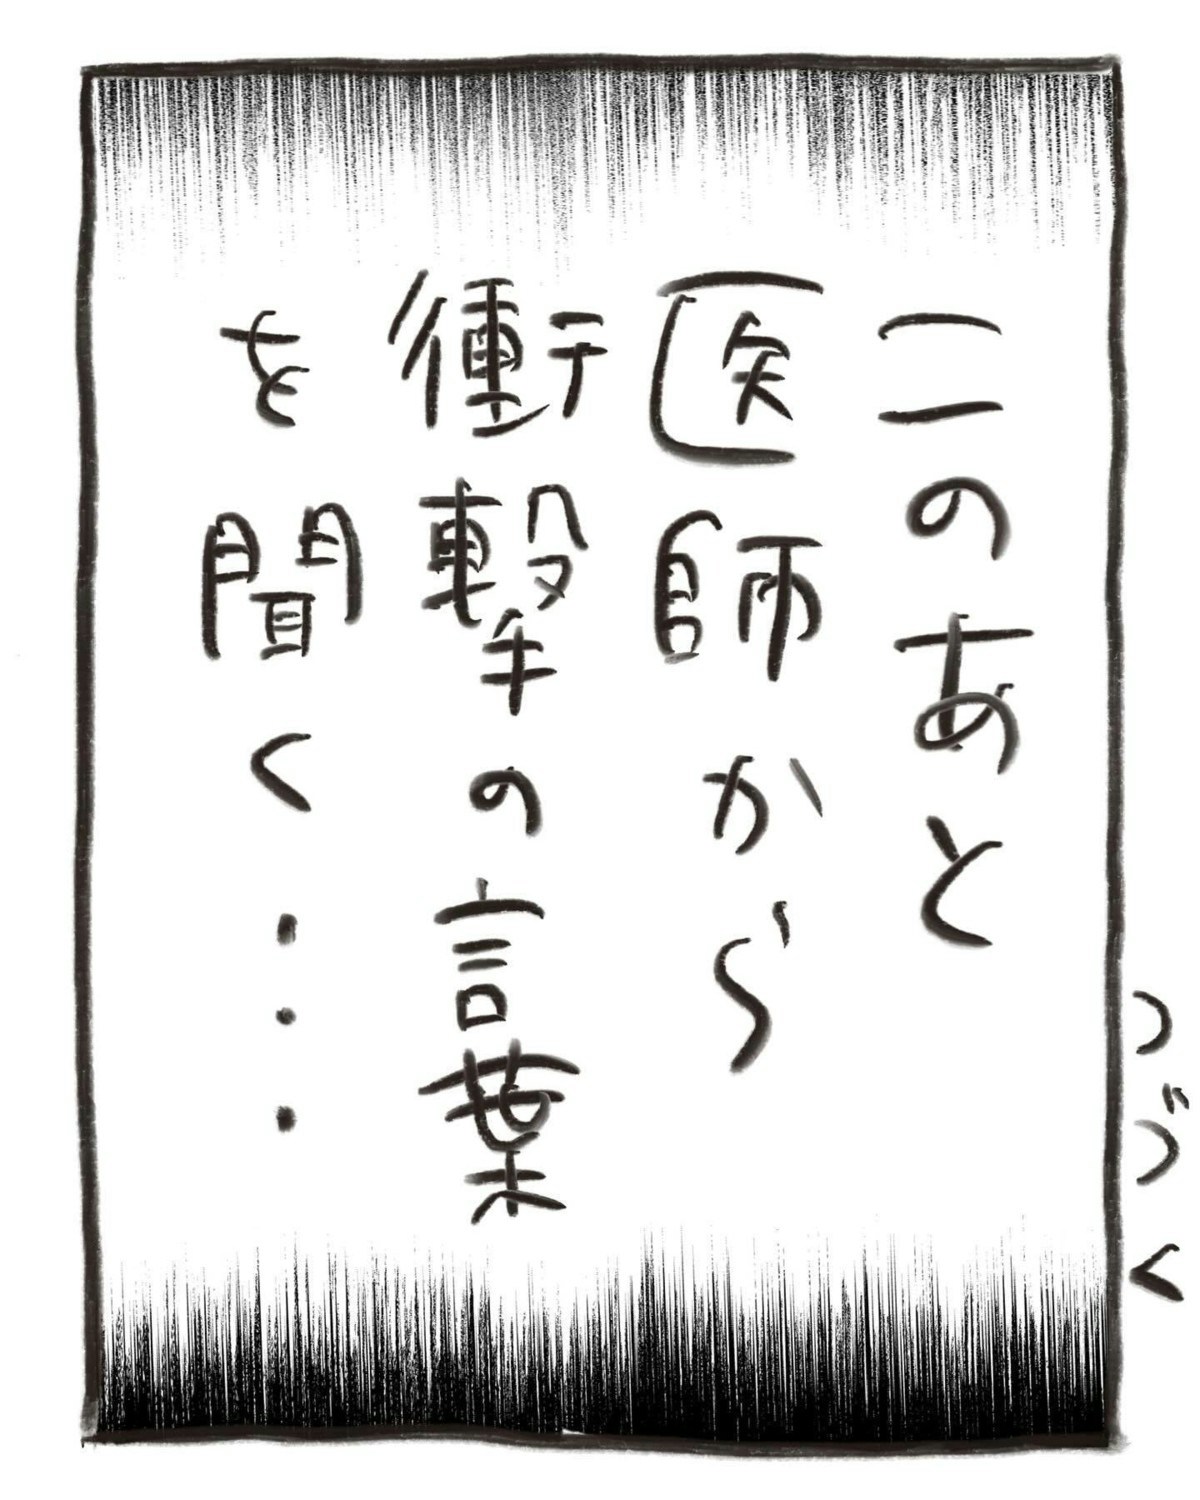 このあと
医師から
衝撃の言葉
を聞く・・・
つづく